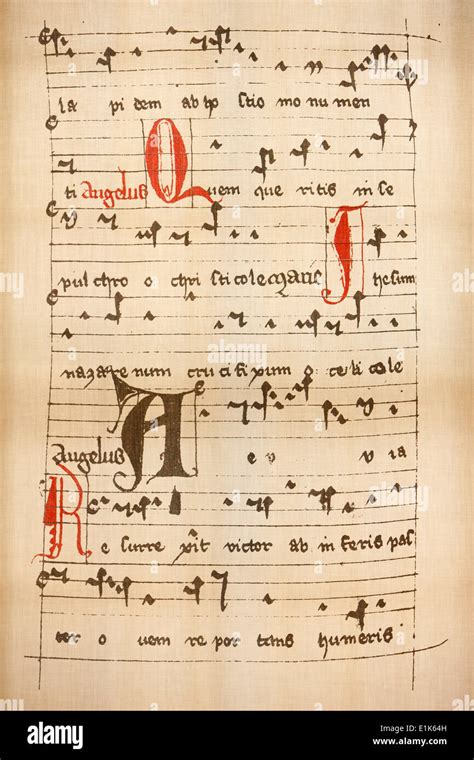 la pi dem ab ip stio mo nu men
ti Angelus Quem que ritis in se
pul chro o chri sti cole Ihesum
nazare num cru ci fixum o celi cole
Angelus A e v ia
Re surre xit victor ab in feris pas
tor o vem re por tans humeris
alamy
alamy
Image ID: E1K64H
www.alamy.com